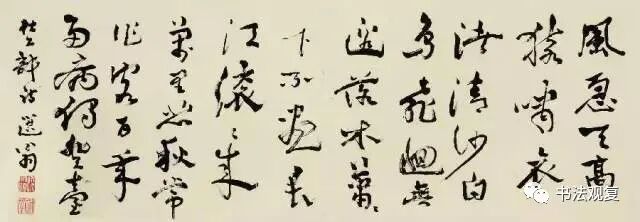 風急天高
猿嘯哀
渚清沙白
鳥飛迴無
邊落木蕭〻
下不盡長
江滾〻來
萬里悲秋常
作客百年
多病獨登臺
詩 翁
书法观复